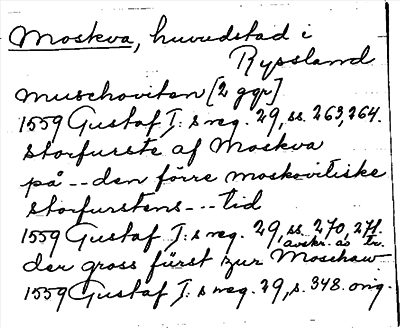 Moskva, huvudstad i
Ryssland
Muschoviten [2 ggr]
1559 Gustaf I:s reg. 29, ss. 263, 264.
Storfurste af Moskva
på -- den förre moskovitiske
storfurstens --- tid
1559 Gustaf I:s reg. 29, ss. 270, 271.
avskr. av Tr.
der gross fürst zur Moschaw
1559 Gustaf I:s reg. 29, s. 348. orig.